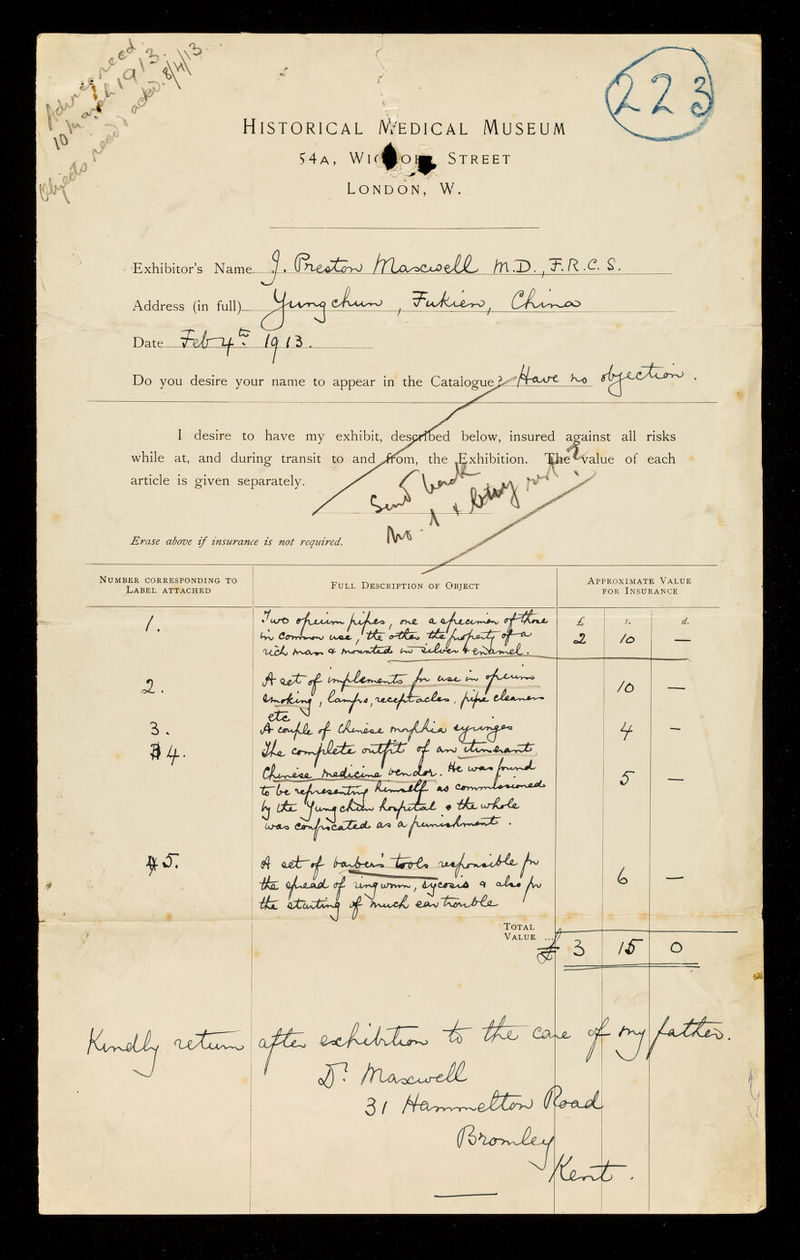 Advice recd
10 March 1913.
Objects recd & ackd. 8/4/13
223
HISTORICAL MEDICAL MUSEUM
54A, STREET
LONDON, W.
Exhibitor's Name J. Preston Maxwell M.D., F.R.C.S.
Address (in full) Yungchun, Fukien, China
Date Feb 4th 1913.
Do you desire your name to appear in the Catalogue? Have no objection.
I desire to have my exhibit, described below, insured against all risks
while at, and during transit to and from, the Exhibition. The value of each
article is given separately.
Send back
No. 1 &
Erase above if insurance is not required.
NUMBER CORRESPONDING TO
LABEL ATTACHED
FULL DESCRIPTION OF OBJECT
APPROXIMATE VALUE
FOR INSURANCE
£ s. d.
1. Two opium pipes, one a specimen of those
in common use, the other the property of a
rich man & mounted in silver & enamel. 2 10 —
2. A set of implements for use in opium
smoking, lamps, receptacles, pipe cleaners
etc 10 —
3. A couple of Chinese morphia syringes 4 —
4. The complete outfit of an itinerant
Chinese medicine vendor. He was found
to be representing himself as commissioned
by the Yungchun hospital & the whole
was confiscated as a punishment. 5 —
5. A set of barber's tools responsible for
the spread of ringworm, sycosis & also for
the starting of much ear trouble. 6 —
TOTAL
VALUE ... £ 3 15 0
Kindly return after exhibition to the care of my father.
Dr. Maxwell
31 Hammelton Road
Bromley
Kent.